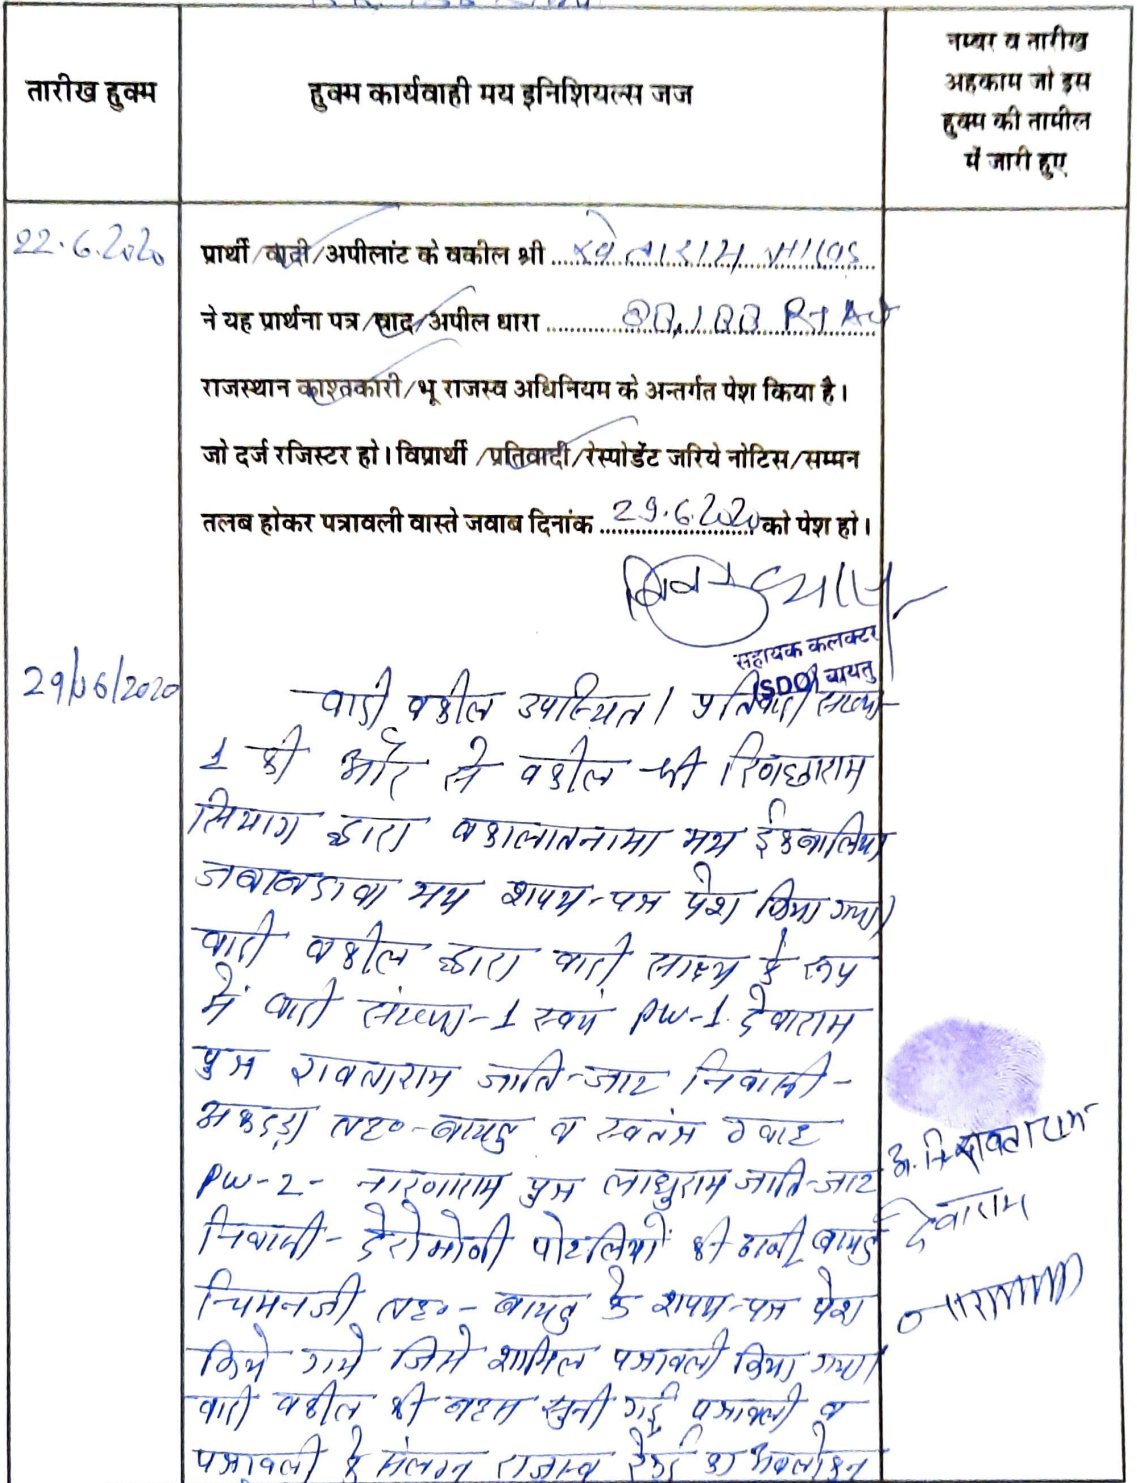 तारीख हुक्म
हुक्म कार्यवाही मय इनिशियल्स जज
नम्बर व तारीख
अहकाम जो इस
हुक्म की तामील
में जारी हुए
22.6.2020
प्रार्थी/वादी/अपीलांट के वकील श्री
ने यह प्रार्थना पत्र/वाद/अपील धारा 88,188 RT Act
राजस्थान काश्तकारी/भू राजस्व अधिनियम के अन्तर्गत पेश किया है।
जो दर्ज रजिस्टर हो। विप्रार्थी/प्रतिवादी/रेस्पोडेंट जरिये नोटिस/सम्मन
तलब होकर पत्रावली वास्ते जवाब दिनांक 29.6.2020 को पेश हो।
सहायक कलक्टर
(SDO) बायतु
29/06/2020
वादी वकील उपस्थित। प्रतिवादी संख्या-
1 की ओर से वकील श्री रिणछाराम
सियाग द्वारा वकालतनामा मय ईकबालिया
जवाबदावा मय शपथ-पत्र पेश किया गया।
वादी वकील द्वारा वादी साक्ष्य के रूप
में वादी संख्या-1 स्वयं PW-1. देवाराम
पुत्र रावताराम जाति-जाट निवासी-
अकदड़ा तह०-बायतु व स्वतंत्र गवाह
PW-2- नारणाराम पुत्र लाधुराम जाति-जाट
निवासी- पोटलियों की ढाणी, बायतु
चिमनजी तह०- बायतु के शपथ-पत्र पेश
किये गये जिसे शामिल पत्रावली किया गया।
वादी वकील की बहस सुनी गई पत्रावली व
पत्रावली के संलग्न राजस्व रेकर्ड का अवलोकन
अ. नि. रावताराम
देवाराम